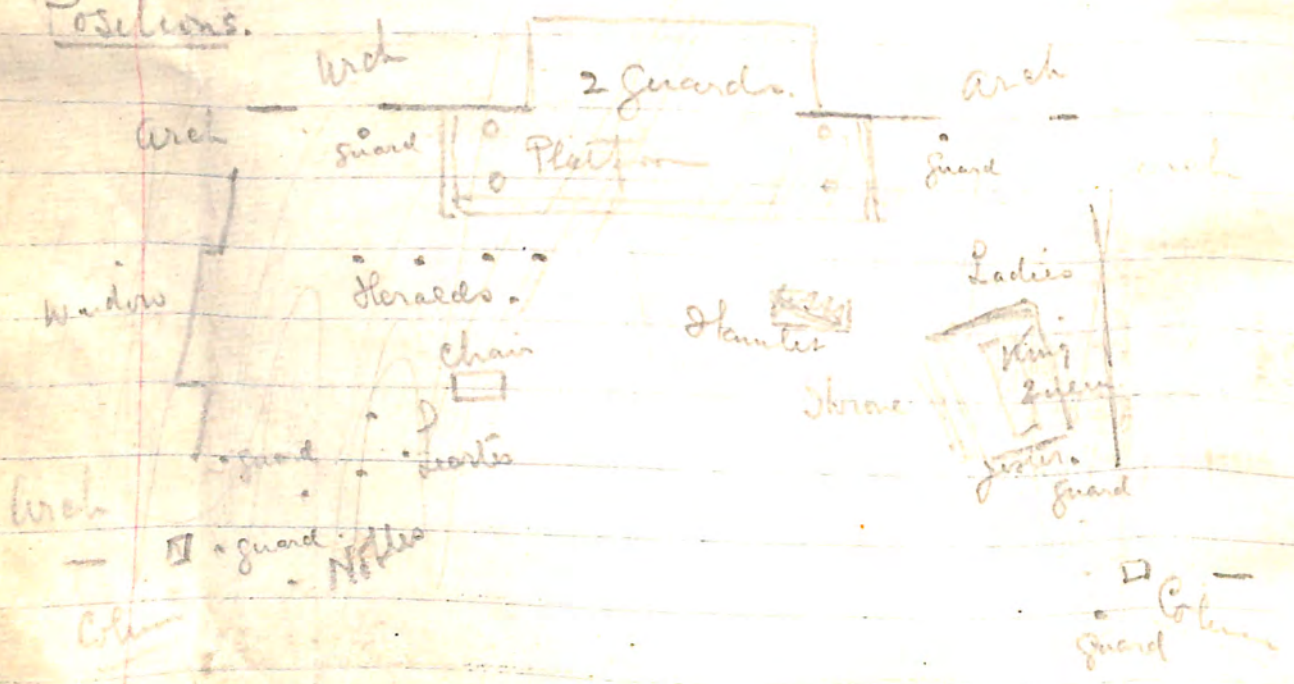 Positions.
Arch
2 Guards.
Arch
Arch
guard
Platform
guard
Ladies
Window
Heralds.
Hamlet
King
Chair
Queen
Throne
guard
Laertes
Jester.
guard
Arch
guard
Nobles
Column
Column
guard